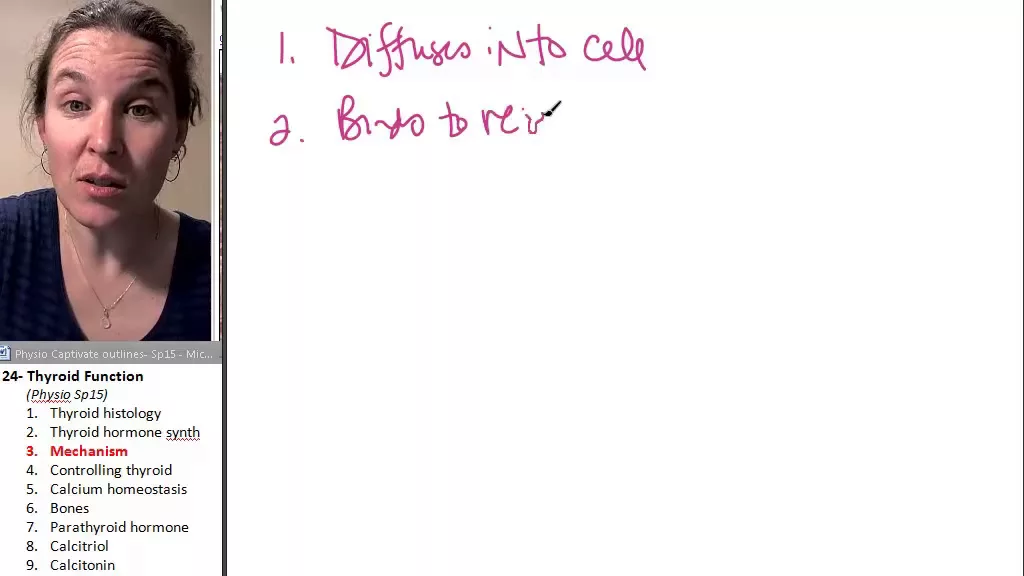 1. Diffuses into cell
2. Binds to
Physio Captivate outlines- Sp15 - Mic...
24- Thyroid Function
(Physio Sp15)
1. Thyroid histology
2. Thyroid hormone synth
3. Mechanism
4. Controlling thyroid
5. Calcium homeostasis
6. Bones
7. Parathyroid hormone
8. Calcitriol
9. Calcitonin